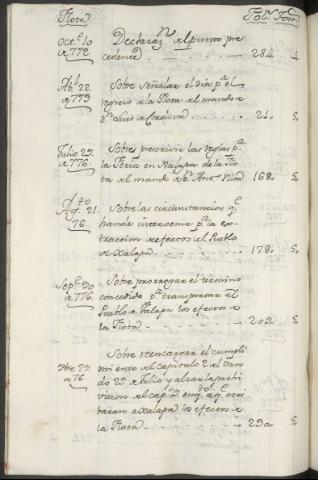 Flota Fol.s Tom.s
Oct.e 10 Declaraz.n del punto pre
de 772 cedente 284 4
Ab.l 22 Sobre señalar el dia p.a el
de 773 regreso de la Flota del mando de
D.n Luis de Cordova 21 5
Julio 29 Sobre prescrivir las reglas p.a
de 776 la Feria en Xalapa de la Flo
ta del mando de D.n Ant.o Ulloa 168 5
Ag.to 21 Sobre las circunstancias q.e
76 han de intervenir p.a la ex
traccion de efectos del Pueblo
de Xalapa 178 5
Sep.e 20 Sobre prorrogar el termino
de 776 concedido p.a transportar al
Pueblo de Xalapa los efectos de
la Flota 209 5
29 Sobre reencargar el cumpli
de 76 miento del capitulo 2 del Van
do 29 de Julio y alzar la prohi
vicion del cap.o
baran a Xalapa los efectos de
la Flota 230 5